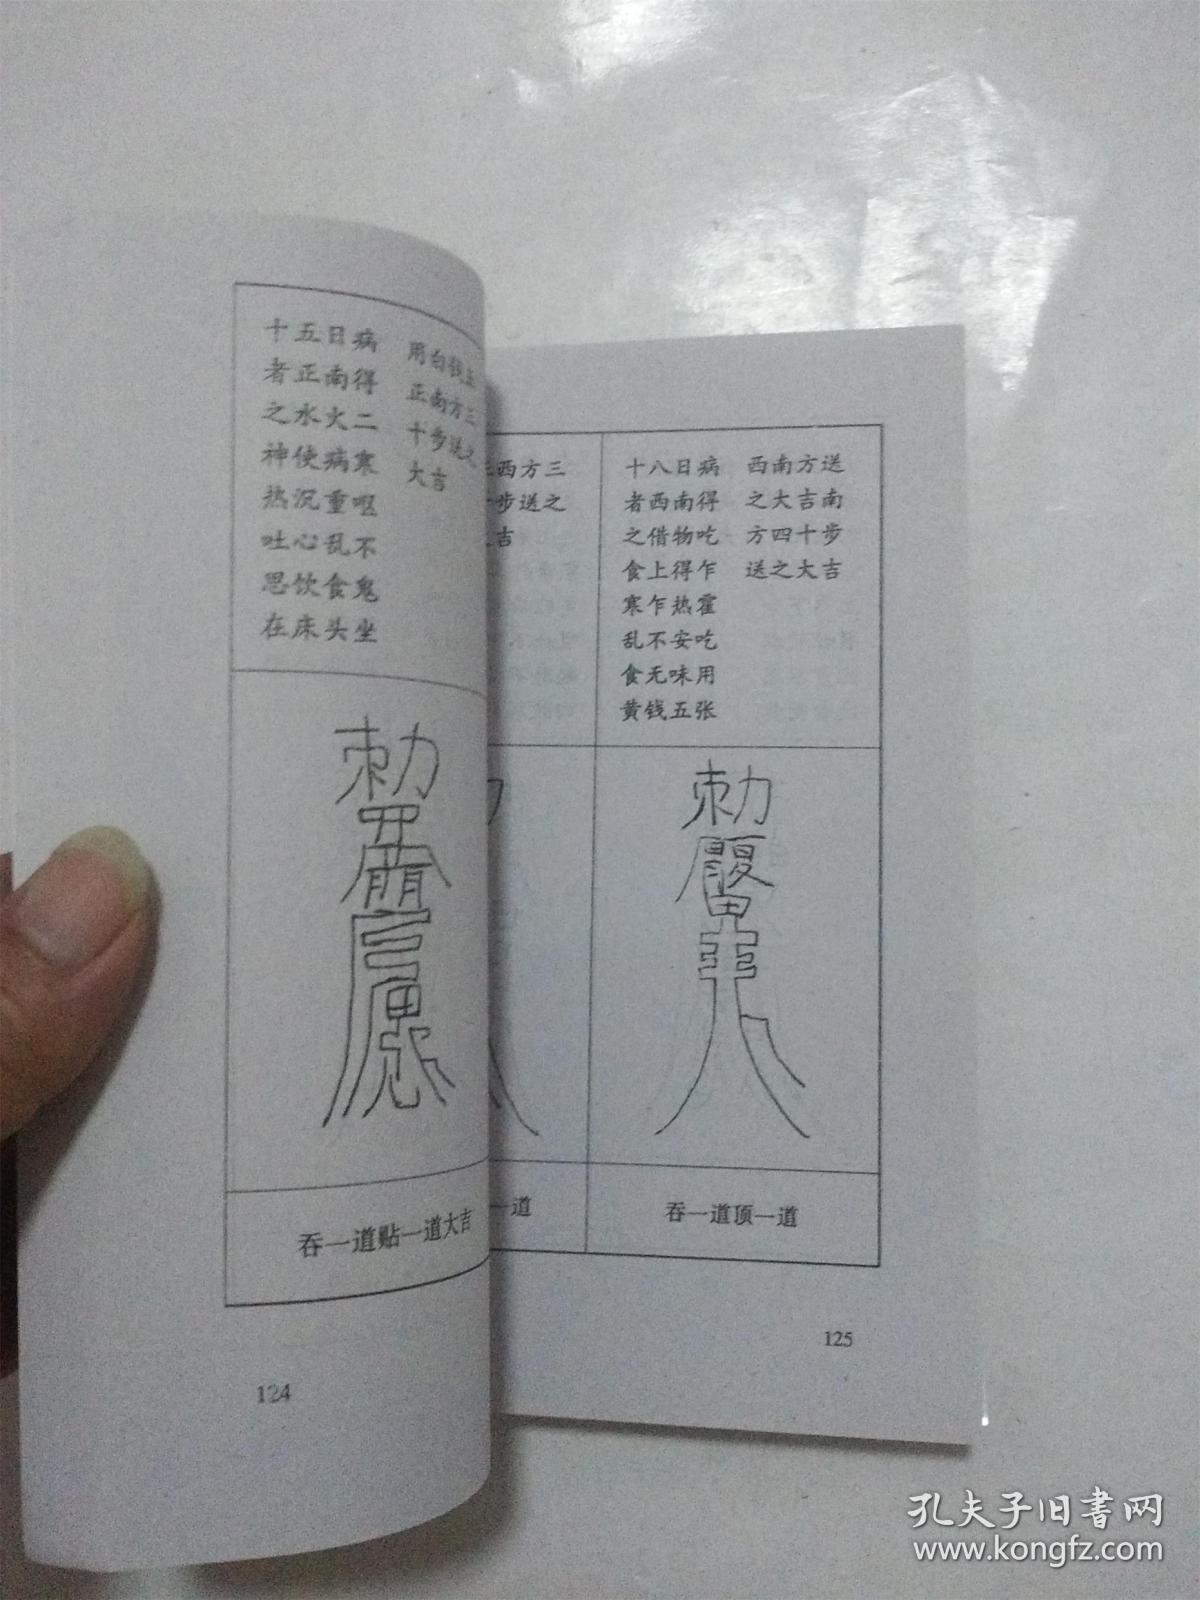 十五日病
者正南得
之水火二
神使病寒
热沉重呕
吐心乱不
思饮食鬼
在床头坐
用白钱五
正南方三
十步送之
大吉
吞一道贴一道大吉
124
西方三
步送之
吉
一道
十八日病
者西南得
之借物吃
食上得乍
寒乍热霍
乱不安吃
食无味用
黄钱五张
西南方送
之大吉南
方四十步
送之大吉
吞一道顶一道
125
孔夫子旧书网
www.kongfz.com